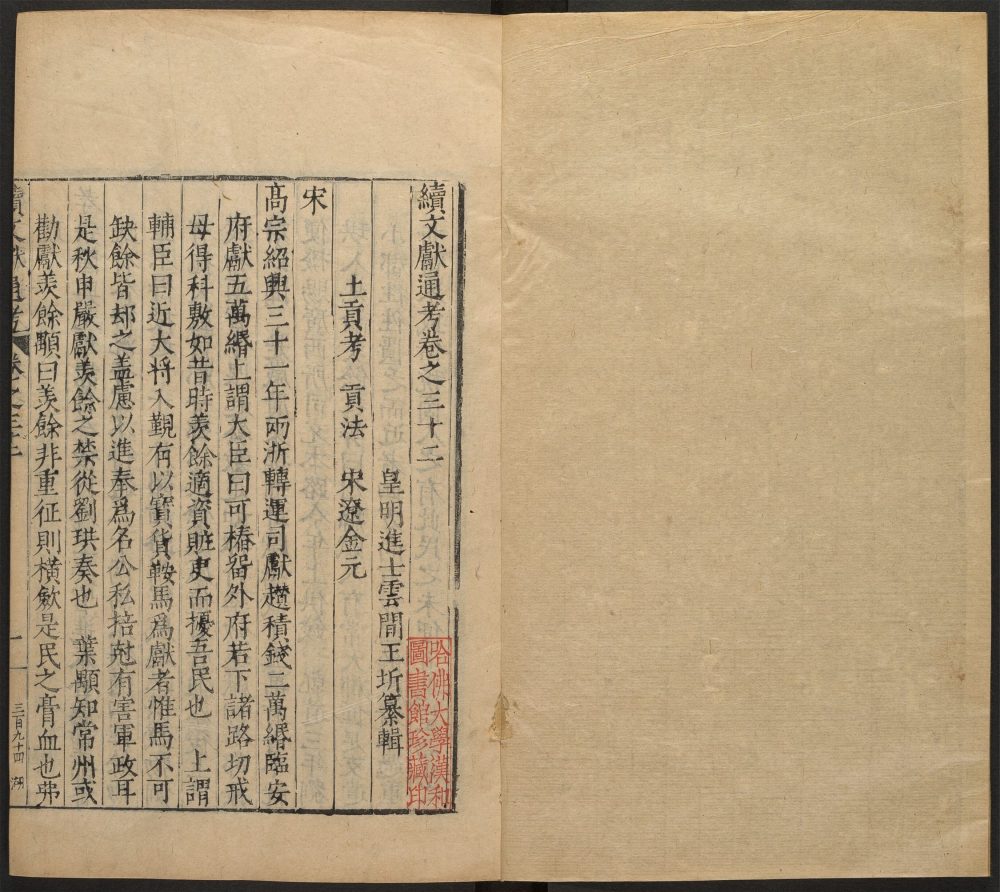 續文獻通考卷之三十二
皇明進士雲間王圻纂輯
土貢考 貢法 宋遼金元
宋
高宗紹興三十一年兩浙轉運司獻趲積錢二萬緡臨安
府獻五萬緡上謂大臣曰可樁畱外府若下諸路切戒
毋得科敷如昔時羨餘適資賍吏而擾吾民也 上謂
輔臣曰近大將入覲有以寳貨鞍馬爲獻者惟馬不可
缺餘皆却之盖慮以進奉爲名公私掊尅有害軍政耳
是秋申嚴獻羨餘之禁從劉珙奏也 葉顒知常州或
勸獻羨餘顒曰羨餘非重征則橫歛是民之膏血也弗
續文獻通考 卷之三十二
一
三百九十四
哈佛大學漢和
圖書館珍藏印